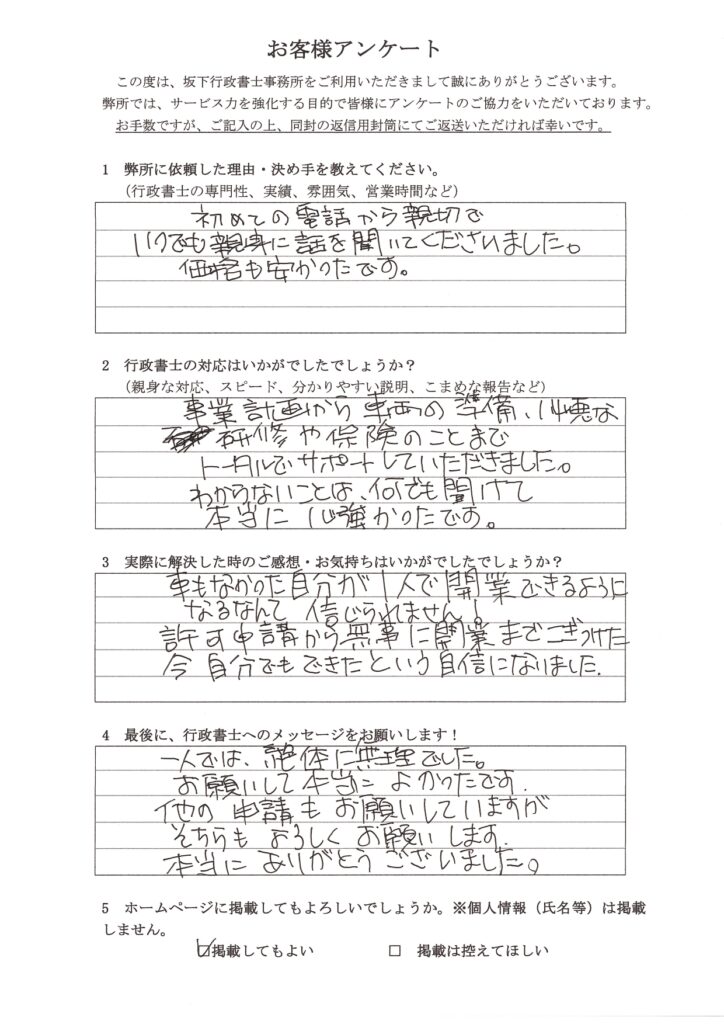 お客様アンケート
この度は、坂下行政書士事務所をご利用いただきまして誠にありがとうございます。
弊所では、サービス力を強化する目的で皆様にアンケートのご協力をいただいております。
お手数ですが、ご記入の上、同封の返信用封筒にてご返送いただければ幸いです。
1 弊所に依頼した理由・決め手を教えてください。
（行政書士の専門性、実績、雰囲気、営業時間など）
初めての電話から親切で
いつでも親身に話を聞いてくださいました。
価格も安かったです。
2 行政書士の対応はいかがでしたでしょうか？
（親身な対応、スピード、分かりやすい説明、こまめな報告など）
事業計画から車両の準備、必要な
研修や保険のことまで
トータルでサポートしていただきました。
わからないことは、何でも聞けて
本当に心強かったです。
3 実際に解決した時のご感想・お気持ちはいかがでしたでしょうか？
車もなかった自分が1人で開業できるように
なるなんて信じられません！
許可申請から無事に開業までこぎつけた
今自分でもできたという自信になりました.
4 最後に、行政書士へのメッセージをお願いします！
一人では、絶体に無理でした。
お願いして本当によかったです.
他の申請もお願いしていますが
そちらもよろしくお願いします.
本当にありがとうございました。
5 ホームページに掲載してもよろしいでしょうか。※個人情報（氏名等）は掲載
しません。
☑掲載してもよい □ 掲載は控えてほしい